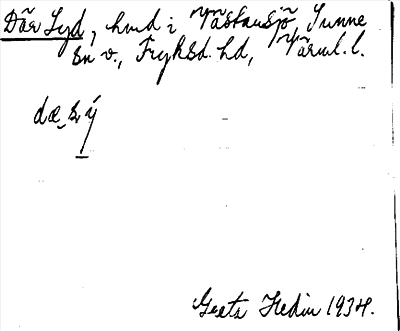 Där Syd, hmd i Västansjö, Sunne
sn v., Fryksd. hd, Värml. l.
dæ̣ sý
Greta Hedin 1934.